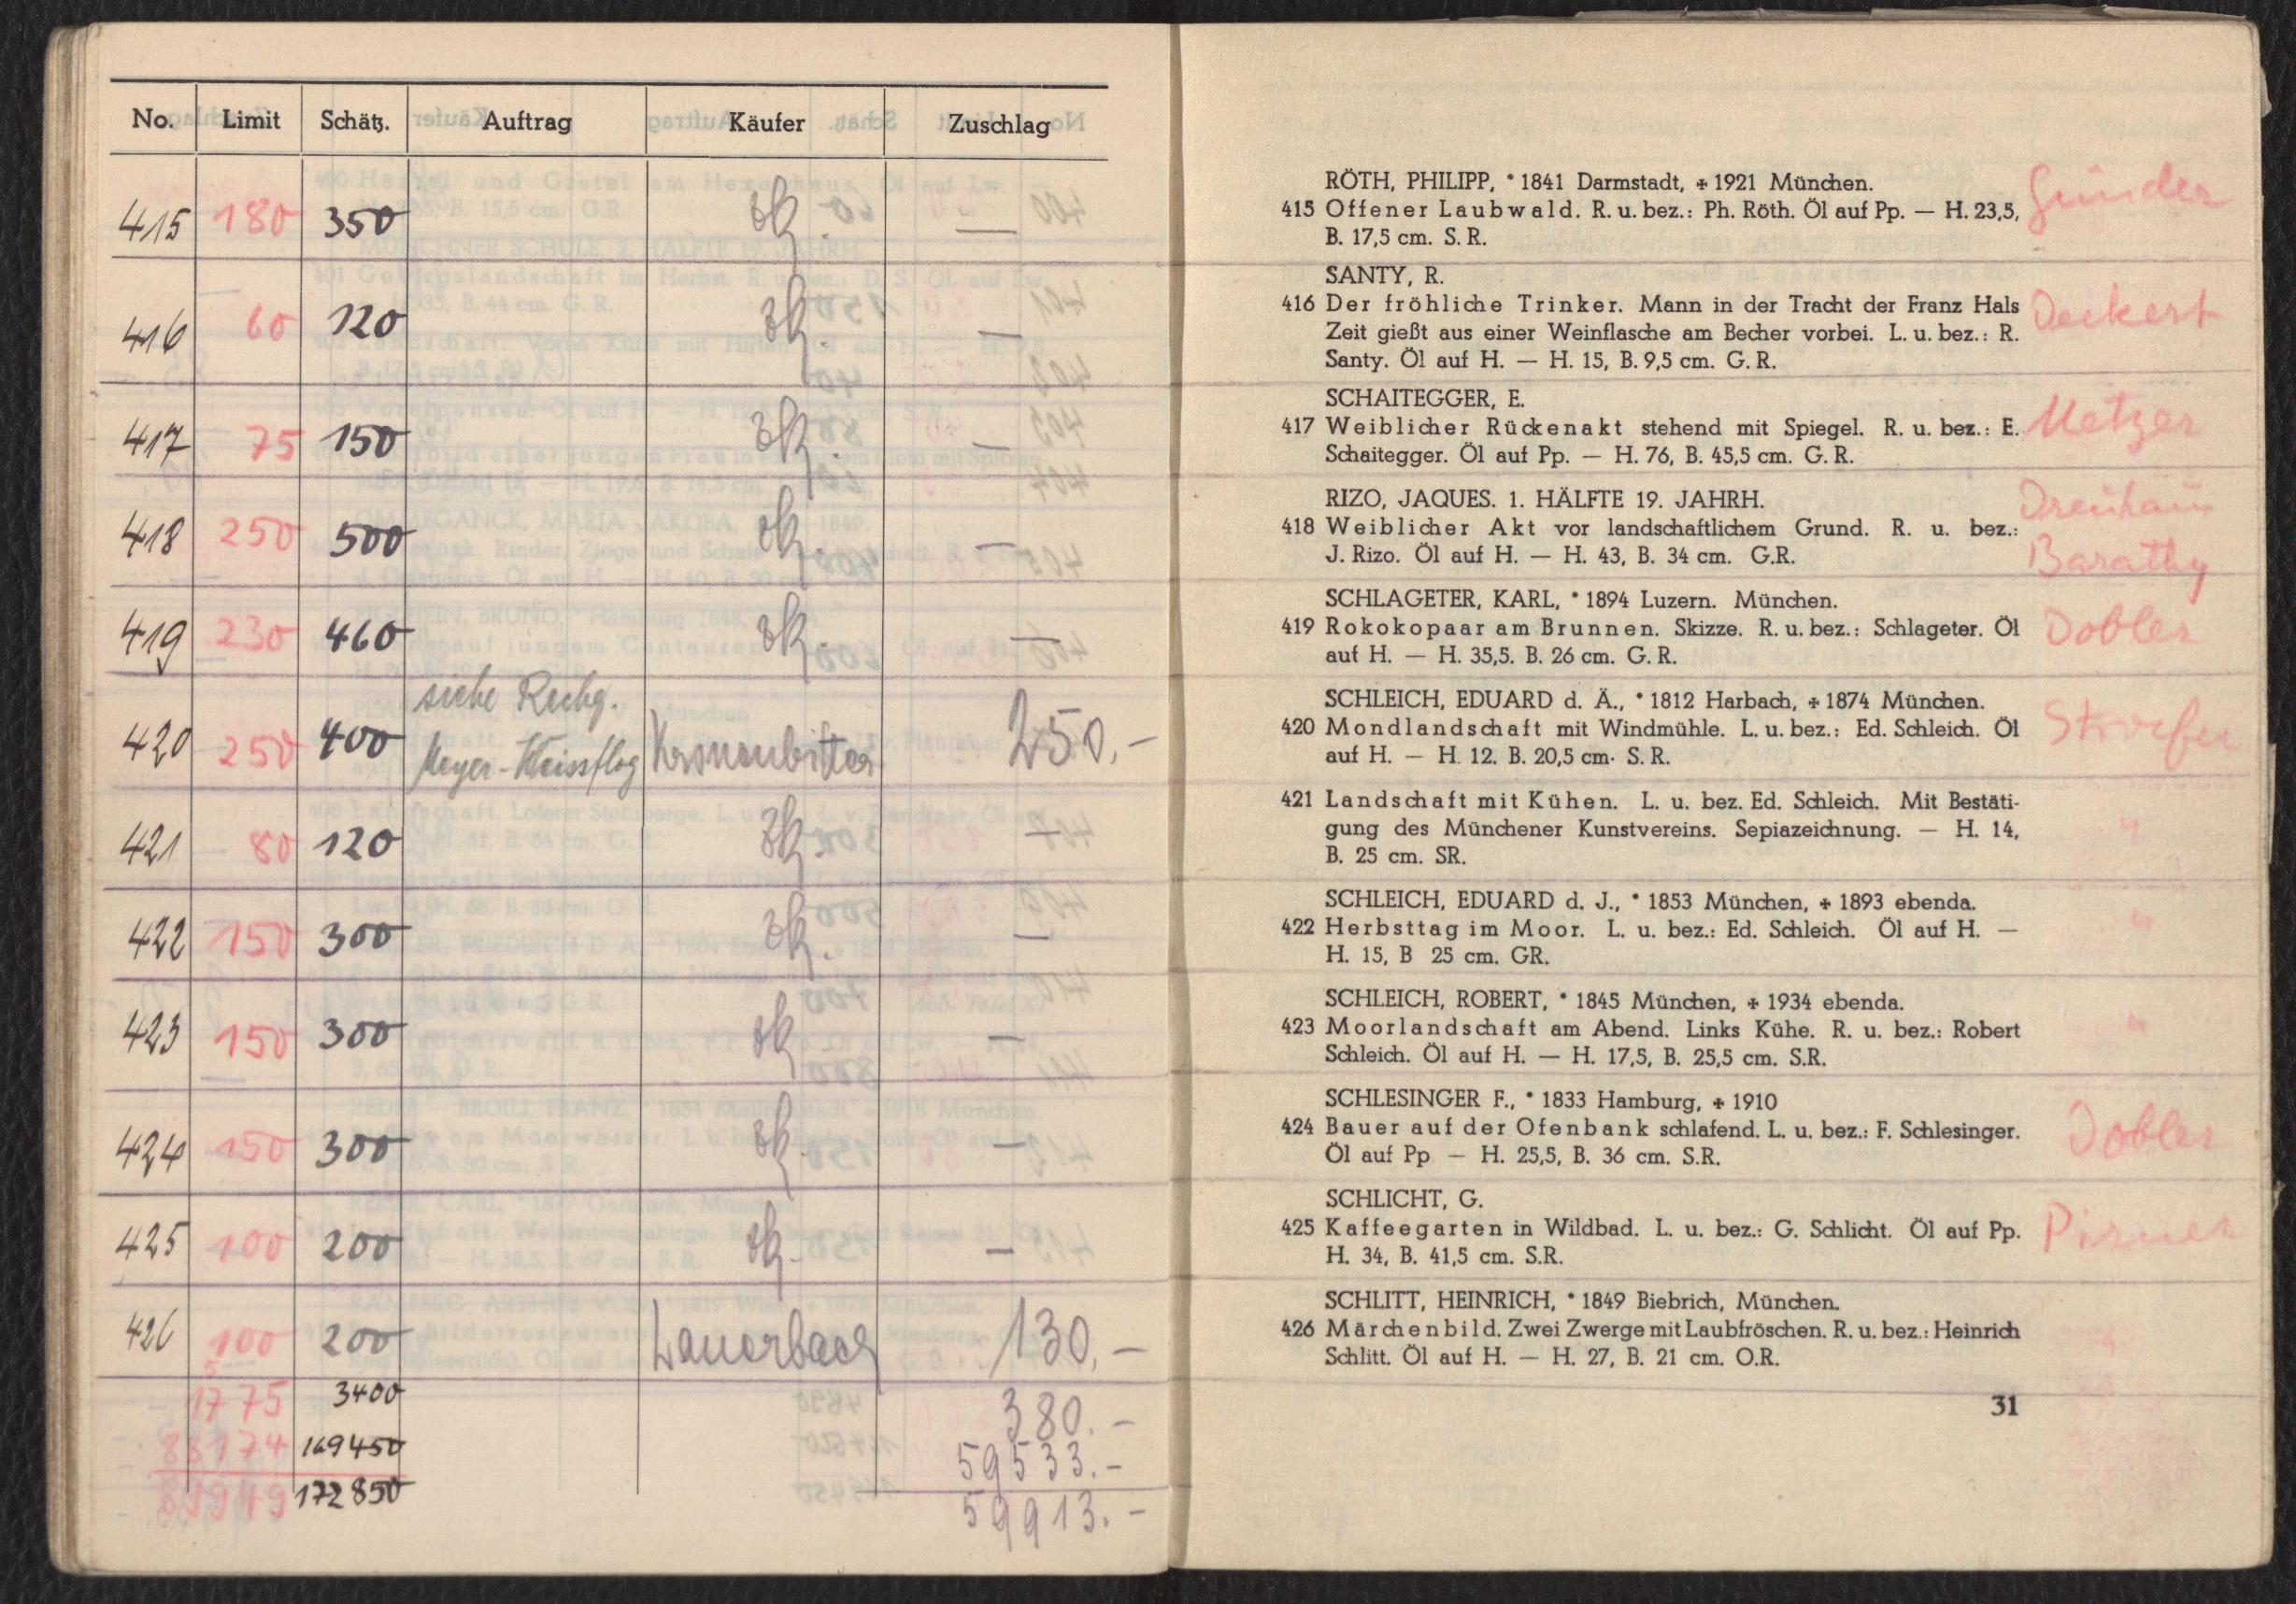 No. Limit Schätz. Auftrag Käufer Zuschlag
415 180 350 zk. —
416 60 120 zk. —
417 75 150 zk. —
418 250 500 zk. —
419 230 460 zk. —
siehe Rechg.
420 250 400 Meyer-Weissflog Kronenbitter 250.-
421 80 120 zk. —
422 150 300 zk. —
423 150 300 zk —
424 150 300 zk. —
425 100 200 zk. —
426 100 200 Lauerbach 130.-
1775 3400 380.-
88174 169450 59533.-
89949 172850 59913.-
RÖTH, PHILIPP, * 1841 Darmstadt, + 1921 München.
415 Offener Laubwald. R. u. bez.: Ph. Röth. Öl auf Pp. — H. 23,5, Günder
B. 17,5 cm. S. R.
SANTY, R.
416 Der fröhliche Trinker. Mann in der Tracht der Franz Hals Deckert
Zeit gießt aus einer Weinflasche am Becher vorbei. L. u. bez.: R.
Santy. Öl auf H. — H. 15, B. 9,5 cm. G. R.
SCHAITEGGER, E.
417 Weiblicher Rückenakt stehend mit Spiegel. R. u. bez.: E. Metzger
Schaitegger. Öl auf Pp. — H. 76, B. 45,5 cm. G. R.
RIZO, JAQUES. 1. HÄLFTE 19. JAHRH.
418 Weiblicher Akt vor landschaftlichem Grund. R. u. bez.:
J. Rizo. Öl auf H. — H. 43, B. 34 cm. G.R. Barathy
SCHLAGETER, KARL, * 1894 Luzern. München.
419 Rokokopaar am Brunnen. Skizze. R. u. bez.: Schlageter. Öl Dobler
auf H. — H. 35,5. B. 26 cm. G. R.
SCHLEICH, EDUARD d. Ä., * 1812 Harbach, + 1874 München.
420 Mondlandschaft mit Windmühle. L. u. bez.: Ed. Schleich. Öl
auf H. — H. 12. B. 20,5 cm. S. R.
421 Landschaft mit Kühen. L. u. bez. Ed. Schleich. Mit Bestäti-
gung des Münchener Kunstvereins. Sepiazeichnung. — H. 14, "
B. 25 cm. SR.
SCHLEICH, EDUARD d. J., * 1853 München, + 1893 ebenda.
422 Herbsttag im Moor. L. u. bez.: Ed. Schleich. Öl auf H. — "
H. 15, B 25 cm. GR.
SCHLEICH, ROBERT, * 1845 München, + 1934 ebenda.
423 Moorlandschaft am Abend. Links Kühe. R. u. bez.: Robert "
Schleich. Öl auf H. — H. 17,5, B. 25,5 cm. S.R.
SCHLESINGER F., * 1833 Hamburg, + 1910
424 Bauer auf der Ofenbank schlafend. L. u. bez.: F. Schlesinger. Dobler
Öl auf Pp — H. 25,5, B. 36 cm. S.R.
SCHLICHT, G.
425 Kaffeegarten in Wildbad. L. u. bez.: G. Schlicht. Öl auf Pp. Pirner
H. 34, B. 41,5 cm. S.R.
SCHLITT, HEINRICH, * 1849 Biebrich, München.
426 Märchenbild. Zwei Zwerge mit Laubfröschen. R. u. bez.: Heinrich "
Schlitt. Öl auf H. — H. 27, B. 21 cm. O.R.
31